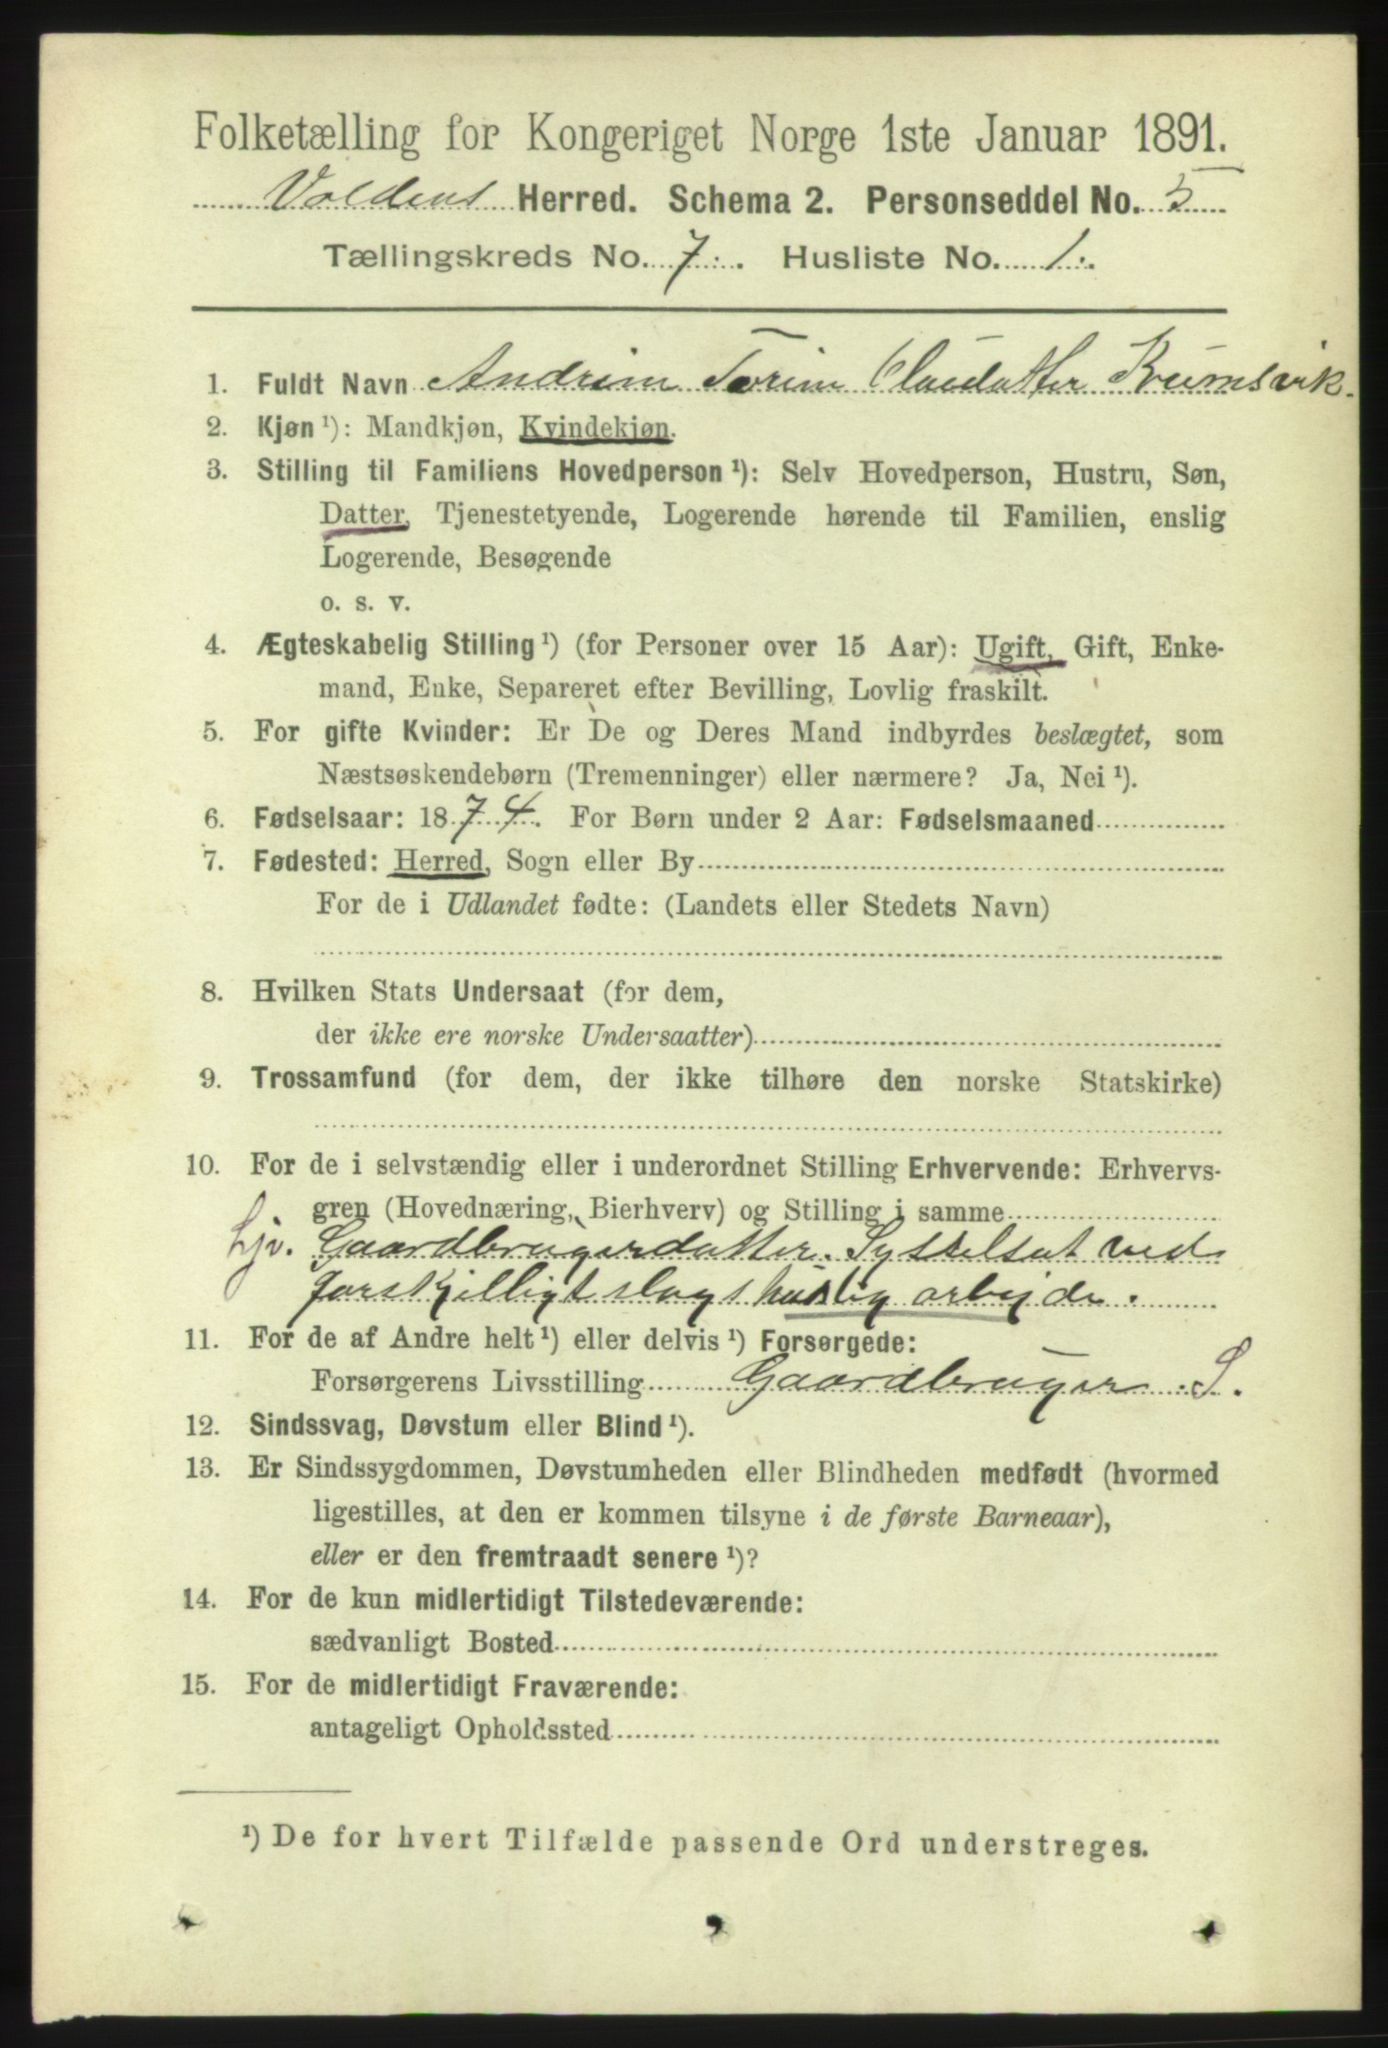 Folketælling for Kongeriget Norge 1ste Januar 1891.
Voldens Herred. Schema 2. Personseddel No. 5
Tællingskreds No. 7. Husliste No. 1.
1. Fuldt Navn Andrine Torine Claudatter Krumsvik.
2. Kjøn ¹): Mandkjøn, Kvindekjøn.
3. Stilling til Familiens Hovedperson ¹): Selv Hovedperson, Hustru, Søn,
Datter, Tjenestetyende, Logerende hørende til Familien, enslig
Logerende, Besøgende
o. s. v.
4. Ægteskabelig Stilling ¹) (for Personer over 15 Aar): Ugift, Gift, Enke-
mand, Enke, Separeret efter Bevilling, Lovlig fraskilt.
5. For gifte Kvinder: Er De og Deres Mand indbyrdes beslægtet, som
Næstsøskendebørn (Tremenninger) eller nærmere? Ja, Nei ¹).
6. Fødselsaar: 1874. For Børn under 2 Aar: Fødselsmaaned
7. Fødested: Herred, Sogn eller By
For de i Udlandet fødte: (Landets eller Stedets Navn)
8. Hvilken Stats Undersaat (for dem,
der ikke ere norske Undersaatter)
9. Trossamfund (for dem, der ikke tilhøre den norske Statskirke)
10. For de i selvstændig eller i underordnet Stilling Erhvervende: Erhvervs-
gren (Hovednæring, Bierhverv) og Stilling i samme
hjv. Gaardbrugerdatter. Sysselsat ved
forskjelligt slags huslig arbejde.
11. For de af Andre helt ¹) eller delvis ¹) Forsørgede:
Forsørgerens Livsstilling Gaardbruger S.
12. Sindssvag, Døvstum eller Blind ¹).
13. Er Sindssygdommen, Døvstumheden eller Blindheden medfødt (hvormed
ligestilles, at den er kommen tilsyne i de første Barneaar),
eller er den fremtraadt senere ¹)?
14. For de kun midlertidigt Tilstedeværende:
sædvanligt Bosted
15. For de midlertidigt Fraværende:
antageligt Opholdssted
¹) De for hvert Tilfælde passende Ord understreges.